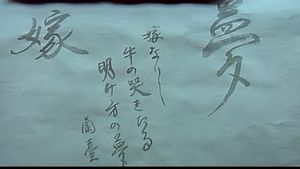 夢
嫁なりし
牛の哭きたる
明け方の夢
蘭臺
嫁